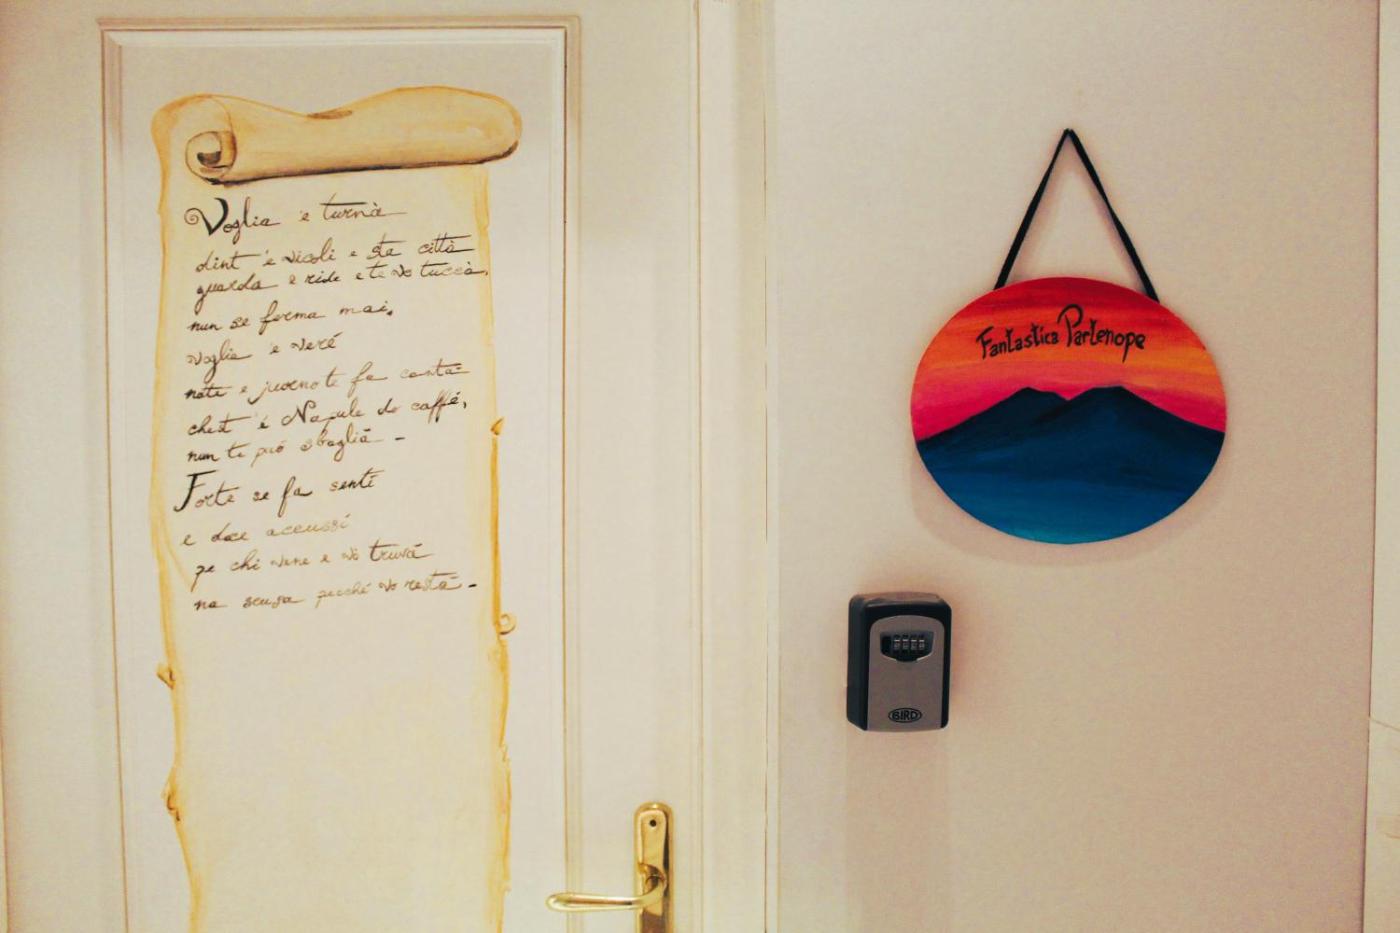 Voglia 'e turnà
dint 'e vicoli e sta città
guarda e ride e te vo tuccà,
nun se ferma mai,
voglia 'e veré
note e juorno te fa cantà
chest é Napule do caffé,
nun te può sbaglià -
Forte se fa sentì
e doce accussì
pe chi vene e vò truvà
na scusa pecché vo restà -
Fantastica Partenope
BIRD